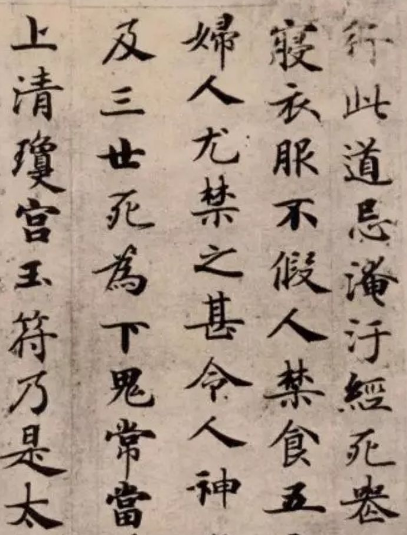 行此道忌淹汙經死喪
寢衣服不假人禁食五
婦人尤禁之甚令人神
及三世死為下鬼常當
上清瓊宮玉符乃是太